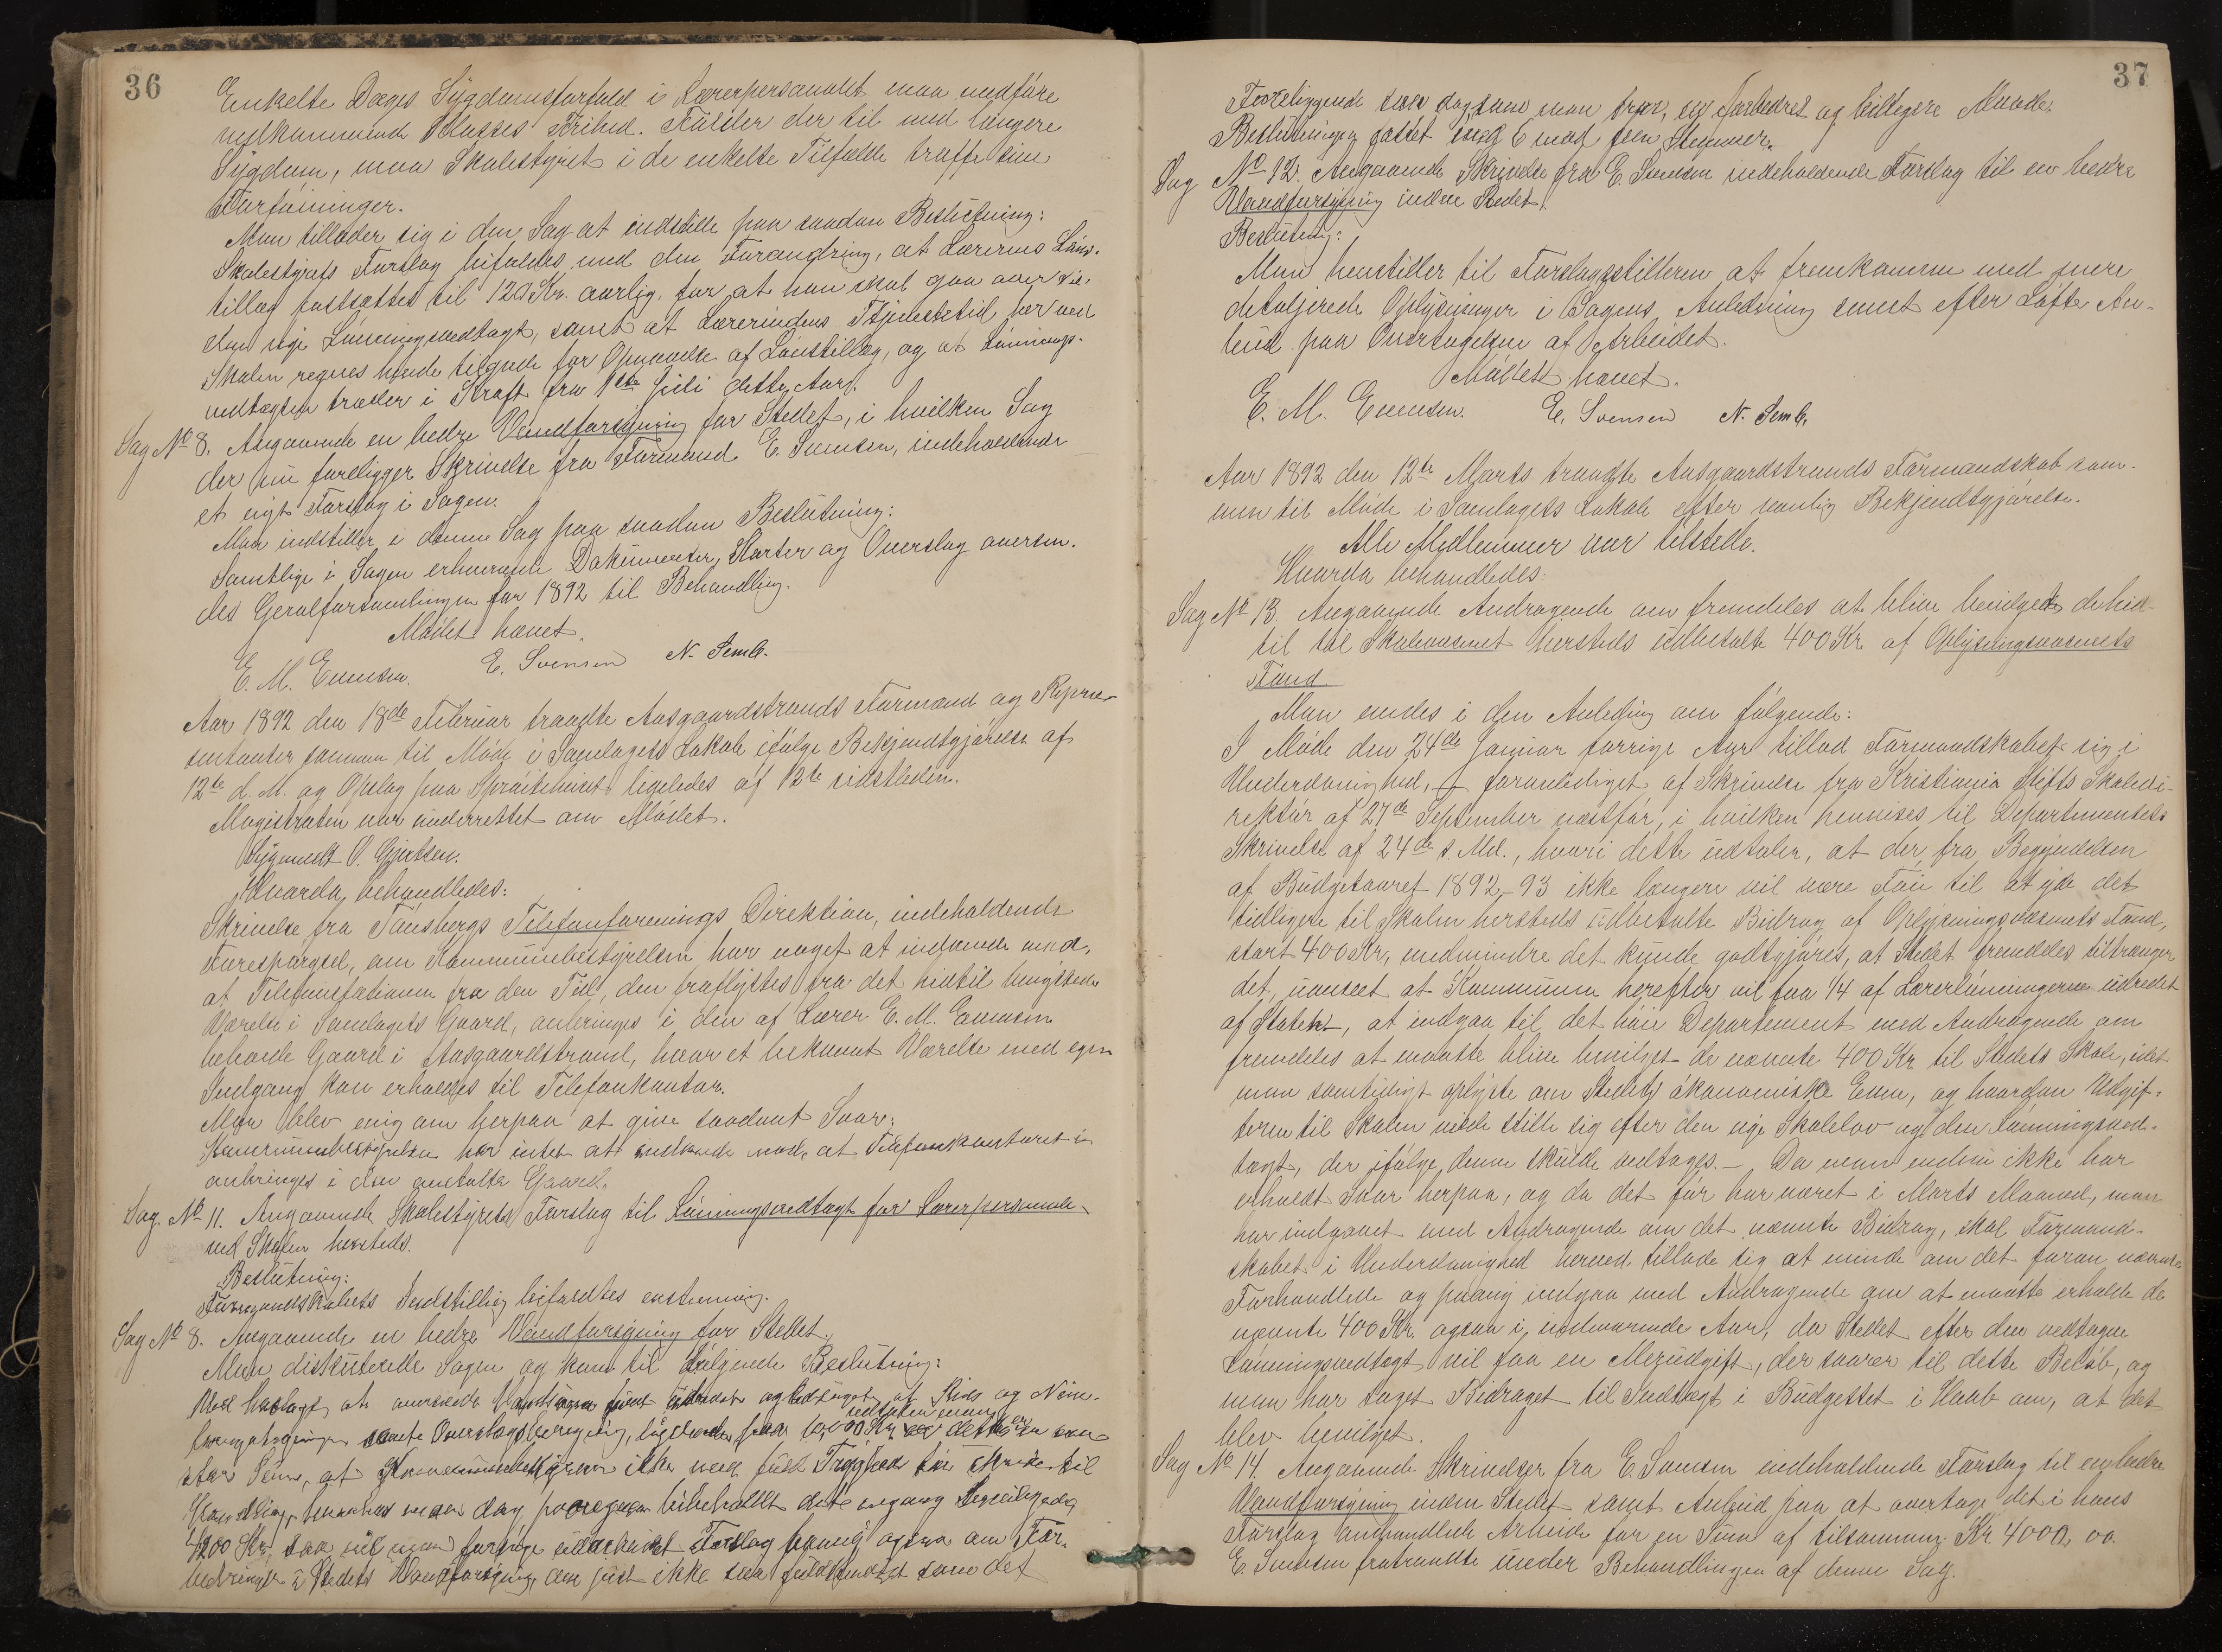 36
Enkelte Dages Sygdomsforfald i Lærerpersonalet maa medføre
vedkommende Klasses Frihed. Falder der til med længere
Sygdom, maa Skolestyret i de enkelte Tilfælde træffe sine
Forføininger.
Man tillader sig i den Sag at indstille paa saadan Beslutning:
Skolestyrets Forslag bifaldes med den Forandring, at Lærerens Løns-
tillæg fastsættes til 120 Kr. aarlig, for at han skal gaa over
den nye Lønningsvedtægt, samt at Lærerindens Tjenestetid her ved
Skolen regnes hende tilgode for Opnaaelse af Lønstillæg, og at Lønnings-
vedtægten træder i Kraft fra 1ste Juli dette Aar.
Sag No 8. Angaaende en bedre Vandforsyning for Stedet, i hvilken Sag
der nu foreligger Skrivelse fra Formand E. Svensen, indeholdende
et nyt Forslag i Sagen.
Man indstiller i denne Sag paa saadan Beslutning:
Samtlige i Sagen erhvervede Dokumenter, Karter og Overslag oversen-
des Geralforsamlingen for 1892 til Behandling.
Mødet hævet.
E. M. Evensen. E. Svensen N. Semb.
Aar 1892 den 18de Februar traadte Aasgaardstrands Formænd og Repræ-
sentanter sammen til Møde i Samlagets Lokale ifølge Bekjendtgjørelse af
12te d. M. og Opslag paa Sprøitehuset ligeledes af 12te sidstleden.
Magistraten var underrettet om Mødet.
Sygmeldt O. Gjertsen.
Hvorda behandledes:
Skrivelse fra Tønsbergs Telefonforenings Direktion, indeholdende
Forespørgsel, om Kommunebestyrelsen har noget at indvende mod,
at Telefonstationen fra den Tid, den fraflyttes fra det hidtil benyttede
Værelse i Samlagets Gaard, anbringes i den af Lærer E. M. Evensen
beboede Gaard i Aasgaardstrand, hvor et bekvemt Værelse med egen
Indgang kan erholdes til Telefonkontor.
Man blev enig om herpaa at give saadant Svar:
Kommunebestyrelsen har intet at indvende mod, at Telefonkontoret
anbringes i den omtalte Gaard.
Sag. No 11. Angaaende Skolestyrets Forslag til Lønningsvedtægt for Lærerpersonale
ved Skolen hersteds.
Beslutning:
Formandskabets Indstilling bifaldtes enstemmig.
Sag No 8. Angaaende en bedre Vandforsyning for Stedet.
Man diskuterede Sagen og kom til følgende Beslutning:
samt Overslagsberegning, lydende paa 10,000 Kr
at Kommunebestyrelsen ikke med fuld Tryghed kan skride til
1200 Kr.
i Stedets Vandforsyning, om just ikke saa fuldkommet som det
37
Foreliggende saa dog, som man tror, en forbedret og billigere Maade.
Beslutningen fattet med 6 mod fem Stemmer.
Sag No 12. Angaaende Skrivelse fra E. Svensen indeholdende Forslag til en bedre
Vandforsyning inden Stedet.
Beslutning:
Man henstiller til Forslagsstilleren at fremkomme med mere
detaljerede Oplysninger i Sagens Anledning samt efter Løfte An-
bud paa Overtagelsen af Arbeidet.
Mødet hævet.
E. M. Evensen. E. Svensen N. Semb.
Aar 1892 den 12te Marts traadte Aasgaardstrands Formandskab sam-
men til Møde i Samlagets Lokale efter vanlig Bekjendtgjørelse.
Alle Medlemmer var tilstede.
Hvorda behandledes:
Sag No 13. Angaaende Andragende om fremdeles at blive bevilget de hid-
til til Skolevæsenet hersteds udbetalte 400 Kr. af Oplysningsvæsenets
Fond
Man enedes i den Anledning om følgende:
I Møde den 24de Januar forrige Aar tillod Formandskabet sig i
Underdanighed, foranlediget af Skrivelse fra Kristiania Stifts Skoledi-
rektør af 27de September næstfør, i hvilken henvises til Departementets
Skrivelse af 24de s. Md., hvori dette udtaler, at der fra Begyndelsen
af Budgetaaret 1892-93 ikke længere vil være Føie til at yde det
tidligere til Skolen hersteds udbetalte Bidrag af Oplysningsvæsenets Fond,
stort 400 Kr, medmindre det kunde godtgjøres, at Stedet fremdeles tiltrænger
det, uanseet at Kommunen herefter vil faa 1/4 af Lærerlønningerne udredet
af Staten, at indgaa til det høie Departement med Andragende om
fremdeles at maatte blive bevilget de nævnte 400 Kr. til Stedets Skole, idet
man samtidigt oplyste om Stedets økonomiske Evne, og hvordan Udgif-
terne til Skolen vilde stille sig efter den nye Skolelov og den Lønningsved-
tægt, der ifølge denne skulde vedtages. – Da man endnu ikke har
erholdt Svar herpaa, og da det før har været i Marts Maaned, man
har indgaaet med Andragende om det nævnte Bidrag, skal Formand-
skabet i Underdanighed herved tillade sig at minde om det foran nævnte
Forhandlede og paany indgaa med Andragende om at maatte erholde de
nævnte 400 Kr. ogsaa i indeværende Aar, da Stedet efter den vedtagne
Lønningsvedtægt vil faa en Merudgift, der svarer til dette Beløb, og
man har taget Bidraget til Indtægt i Budgettet i Haab om, at det
blev bevilget.
Sag No 14. Angaaende Skrivelser fra E. Svensen indeholdende Forslag til en bedre
Vandforsyning inden Stedet samt Anbud paa at overtage det i hans
Forslag omhandlede Arbeide for en Sum af tilsammen Kr. 4000,00.
E. Svensen fratraadte under Behandlingen af denne Sag.